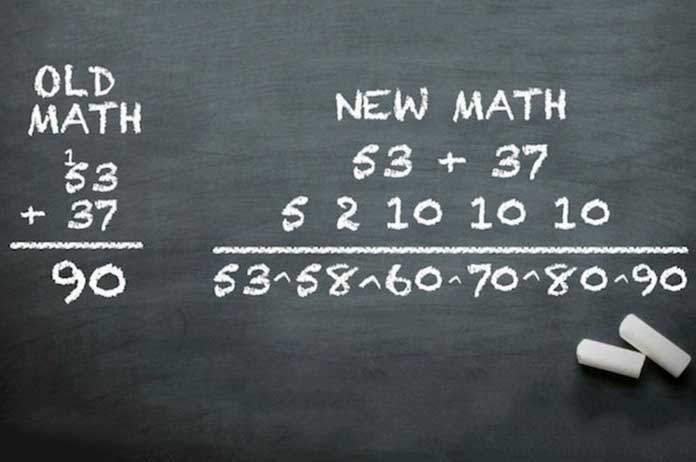 OLD
MATH
1
53
+ 37
90
NEW MATH
53 + 37
5 2 10 10 10
53^58^60^70^80^90